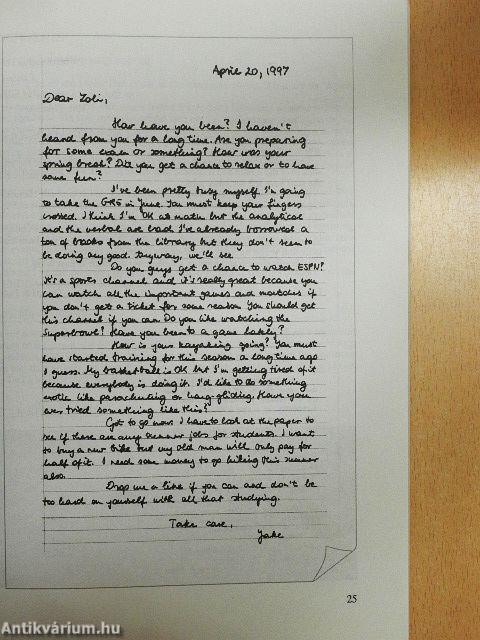 April 20, 1997
Dear Zoli,
How have you been? I haven't
heard from you for a long time. Are you preparing
for some exam or something? How was your
spring break? Did you get a chance to relax or to have
some fun?
I've been pretty busy myself. I'm going
to take the GRE in June. You must keep your fingers
crossed. I think I'm OK at math but the analytical
and the verbal are bad. I've already borrowed a
ton of books from the library but they don't seem to
be doing any good. Anyway, we'll see.
Do you guys get a chance to watch ESPN?
It's a sports channel and it's really great because you
can watch all the important games and matches if
you don't get a ticket for some reason. You should get
this channel if you can. Do you like watching the
Superbowl? Have you been to a game lately?
How is your kayaking going? You must
have started training for this season a long time ago
I guess. My basketball is OK but I'm getting tired of it
because everybody is doing it. I'd like to do something
exotic like parachuting or hang-gliding. Have you
ever tried something like this?
Got to go now. I have to look at the paper to
see if there are any summer jobs for students. I want
to buy a new bike but my old man will only pay for
half of it. I need some money to go hiking this summer
also.
Drop me a line if you can and don't be
too hard on yourself with all that studying.
Take care,
Jake
25
Antikvárium.hu